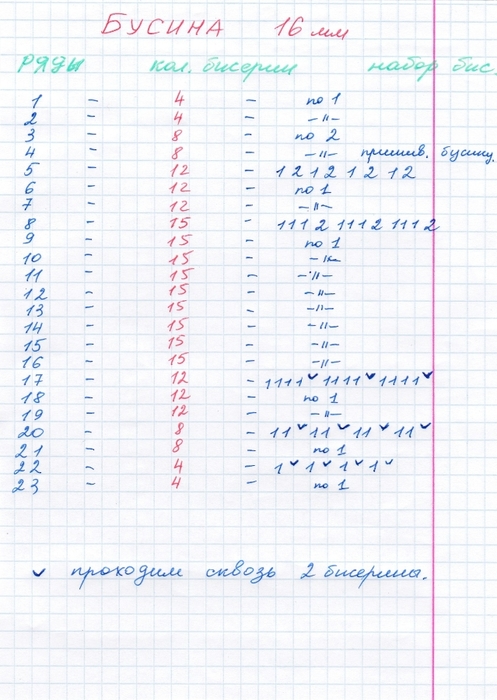 БУСИНА 16 мм
РЯДЫ кол. бисерин набор бис.
1 – 4 – по 1
2 – 4 – –"–
3 – 8 – по 2
4 – 8 – –"– пришив. бусину.
5 – 12 – 1 2 1 2 1 2 1 2
6 – 12 – по 1
7 – 12 – –"–
8 – 15 – 1 1 1 2 1 1 1 2 1 1 1 2
9 – 15 – по 1
10 – 15 – –"–
11 – 15 – –"–
12 – 15 – –"–
13 – 15 – –"–
14 – 15 – –"–
15 – 15 – –"–
16 – 15 – –"–
17 – 12 – 1 1 1 1 ✓ 1 1 1 1 ✓ 1 1 1 1 ✓
18 – 12 – по 1
19 – 12 – –"–
20 – 8 – 1 1 ✓ 1 1 ✓ 1 1 ✓ 1 1 ✓
21 – 8 – по 1
22 – 4 – 1 ✓ 1 ✓ 1 ✓ 1 ✓
23 – 4 – по 1
✓ проходим сквозь 2 бисерины.